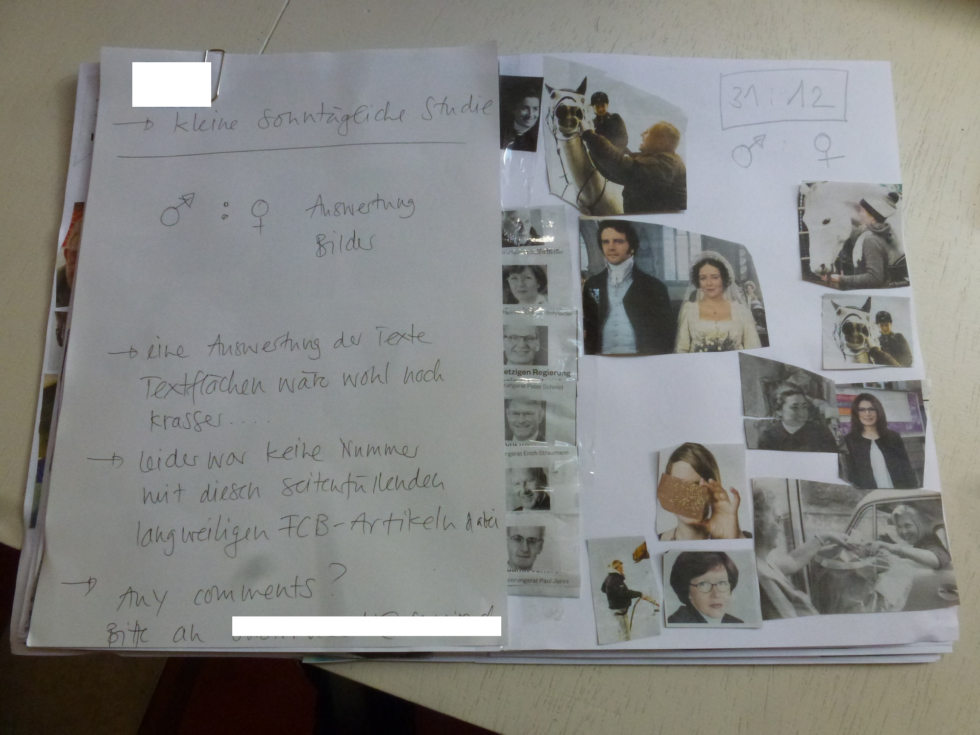 → kleine sonntägliche Studie
♂ : ♀ Auswertung
Bilder
→ eine Auswertung der Texte
Textflächen wäre wohl noch
krasser....
→ leider war keine Nummer
mit diesen seitenfüllenden
langweiligen FCB-Artikeln dabei
→ Any comments?
Bitte an
31 : 12
♂ ♀
etzigen Regierung